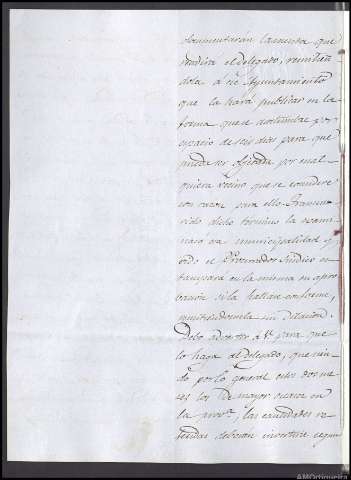 documentarán la cuenta que
rendirá el delegado, remitien
dola á ese Ayuntamiento
que la hará publicar en la
forma que se acostumbre por
espacio de seis dias para que
pueda ser ojeada por cual
quiera vecino que se considere
con razon para ello. Transcur
rido dicho termino la exami
nará esa municipalidad y
oido el Procurador Sindico es
tampará en la misma su apro
bacion si la hallare conforme,
remitiendomela sin dilacion.
Debo advertir a V. para que
lo haga al delegado, que sien
do por lo general estos dos me
ses los de mayor en
la prov.ª las cantidades re
cibidas deberán invertirse segun
AMOrtigueira